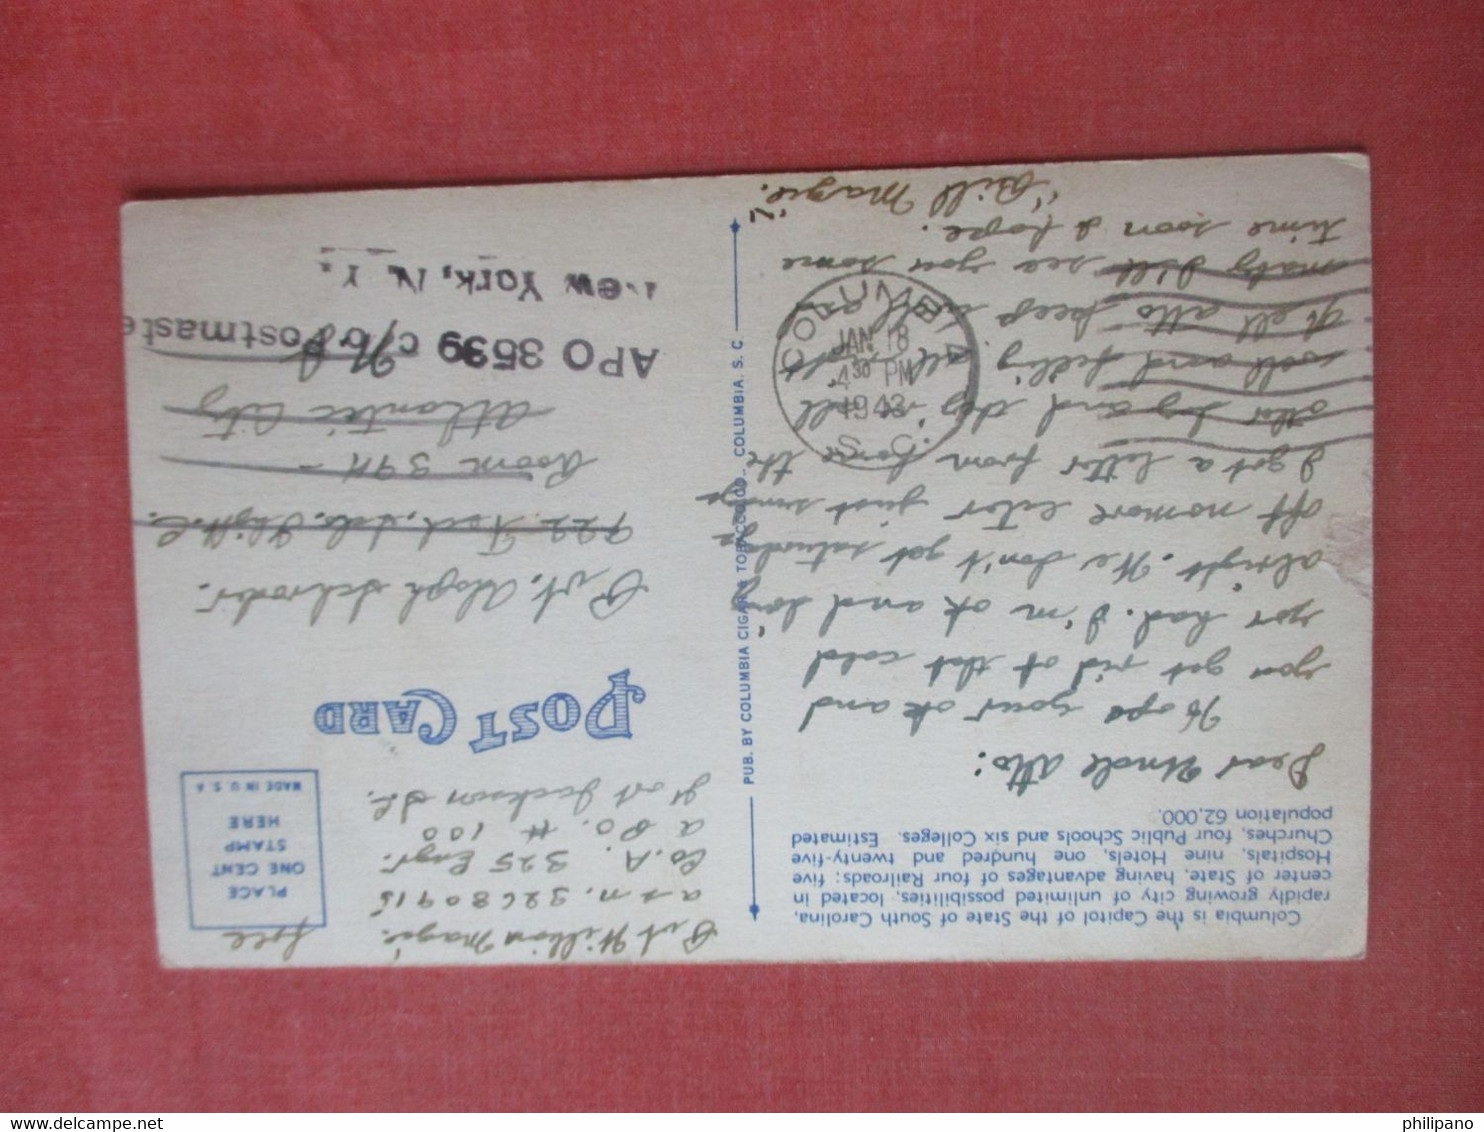 Columbia is the Capitol of the State of South Carolina,
rapidly growing city of unlimited possibilities, located in
center of State, having advantages of four Railroads; five
Hospitals, nine Hotels, one hundred and twenty-five
Churches, four Public Schools and six Colleges. Estimated
population 62,000.
Dear Uncle Atto:
Hope your ok and
you got rid of that cold
yor had. I'm ok and doing
alright. We don't get saturday
off nomore eiter just sundays
I got a letter from home the
other day and they're all
well and feeling all right
Well atto keep well and
maby I'll see you some
time soon I hope.
"Bill Magie."
COLUMBIA
JAN 18
4 30 PM
1943
S. C.
PUB. BY COLUMBIA CIGAR & TOBACCO CO., COLUMBIA, S. C.
Pvt William Magie
asn. 32680915
Co. A. 325 Engr.
A PO. # 100
Fort Jackson S.C.
free
PLACE
ONE CENT
STAMP
HERE
MADE IN U.S.A
POST CARD
Pvt. Adoph Schroder.
722 Tech. Sch.
Room 3411 -
Atlantic City
N.J.
APO 3539 c/o Postmaste
New York, N. Y.
delcampe.net
philipano